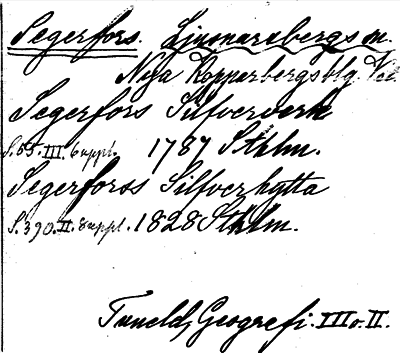 Segerfors. Linnarsbergs m.
Nya Kopparbergsblg.
Segerfors Silfververk
S. 65. III. 6 uppl. 1787 Sthlm.
Segerforss Silfverhytta
S. 390. II. 8 uppl. 1828 Sthlm.
Tuneld, Geografi. III o. II.